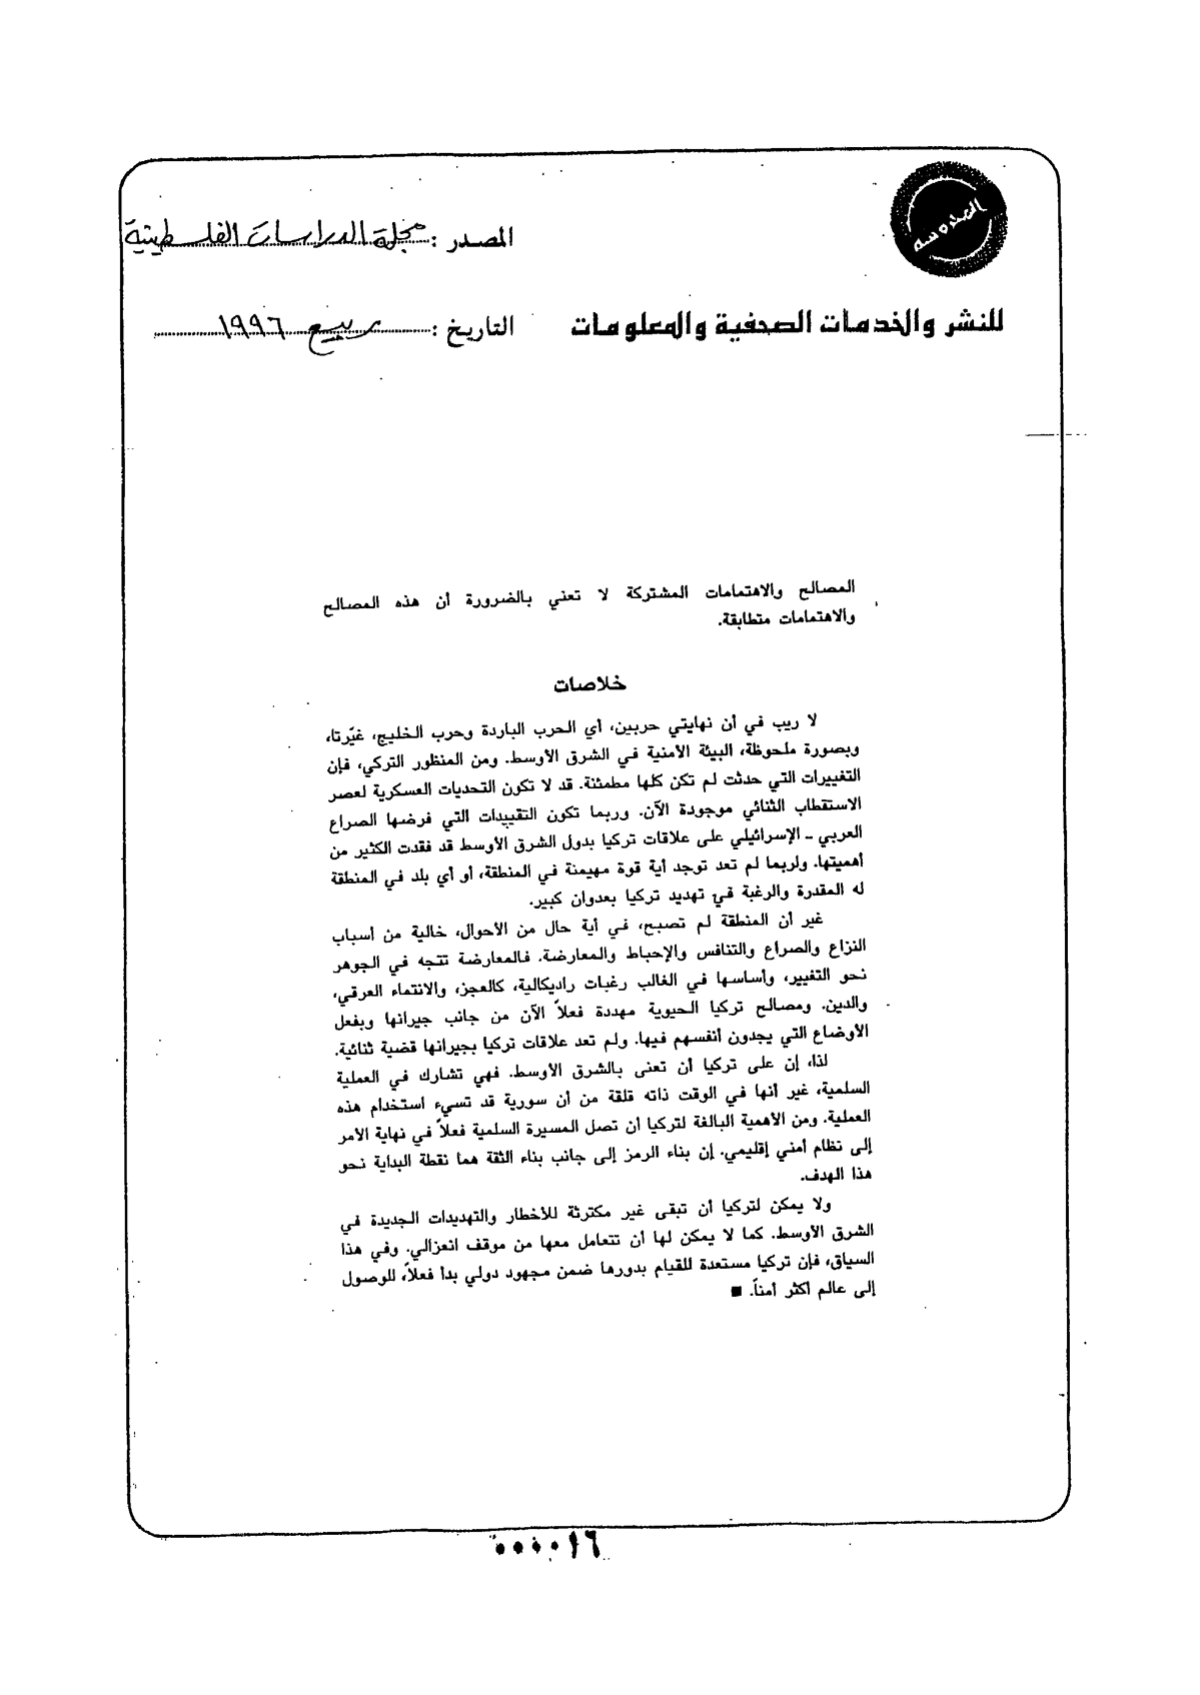 المصدر: مجلة الدراسات الفلسطينية
للنشر والخدمات الصحفية والمعلومات
التاريخ: ربيع ١٩٩٦
المصالح والاهتمامات المشتركة لا تعني بالضرورة أن هذه المصالح
والاهتمامات متطابقة.
خلاصات
لا ريب في أن نهايتي حربين، أي الحرب الباردة وحرب الخليج، غيّرتا،
وبصورة ملحوظة، البيئة الأمنية في الشرق الأوسط. ومن المنظور التركي، فإن
التغييرات التي حدثت لم تكن كلها مطمئنة. قد لا تكون التحديات العسكرية لعصر
الاستقطاب الثنائي موجودة الآن. وربما تكون التقييدات التي فرضها الصراع
العربي ـ الإسرائيلي على علاقات تركيا بدول الشرق الأوسط قد فقدت الكثير من
أهميتها. ولربما لم تعد توجد أية قوة مهيمنة في المنطقة، أو أي بلد في المنطقة
له المقدرة والرغبة في تهديد تركيا بعدوان كبير.
غير أن المنطقة لم تصبح، في أية حال من الأحوال، خالية من أسباب
النزاع والصراع والتنافس والإحباط والمعارضة. فالمعارضة تتجه في الجوهر
نحو التغيير، وأساسها في الغالب رغبات راديكالية، كالعجز، والانتماء العرقي،
والدين. ومصالح تركيا الحيوية مهددة فعلاً الآن من جانب جيرانها وبفعل
الأوضاع التي يجدون أنفسهم فيها. ولم تعد علاقات تركيا بجيرانها قضية ثنائية.
لذا، إن على تركيا أن تعنى بالشرق الأوسط. فهي تشارك في العملية
السلمية، غير أنها في الوقت ذاته قلقة من أن سورية قد تسيء استخدام هذه
العملية. ومن الأهمية البالغة لتركيا أن تصل المسيرة السلمية فعلاً في نهاية الأمر
إلى نظام أمني إقليمي. إن بناء الرمز إلى جانب بناء الثقة هما نقطة البداية نحو
هذا الهدف.
ولا يمكن لتركيا أن تبقى غير مكترثة للأخطار والتهديدات الجديدة في
الشرق الأوسط. كما لا يمكن لها أن تتعامل معها من موقف انعزالي. وفي هذا
السياق، فإن تركيا مستعدة للقيام بدورها ضمن مجهود دولي بدأ فعلاً، للوصول
إلى عالم أكثر أمناً. ■
٠٠٠٠١٦